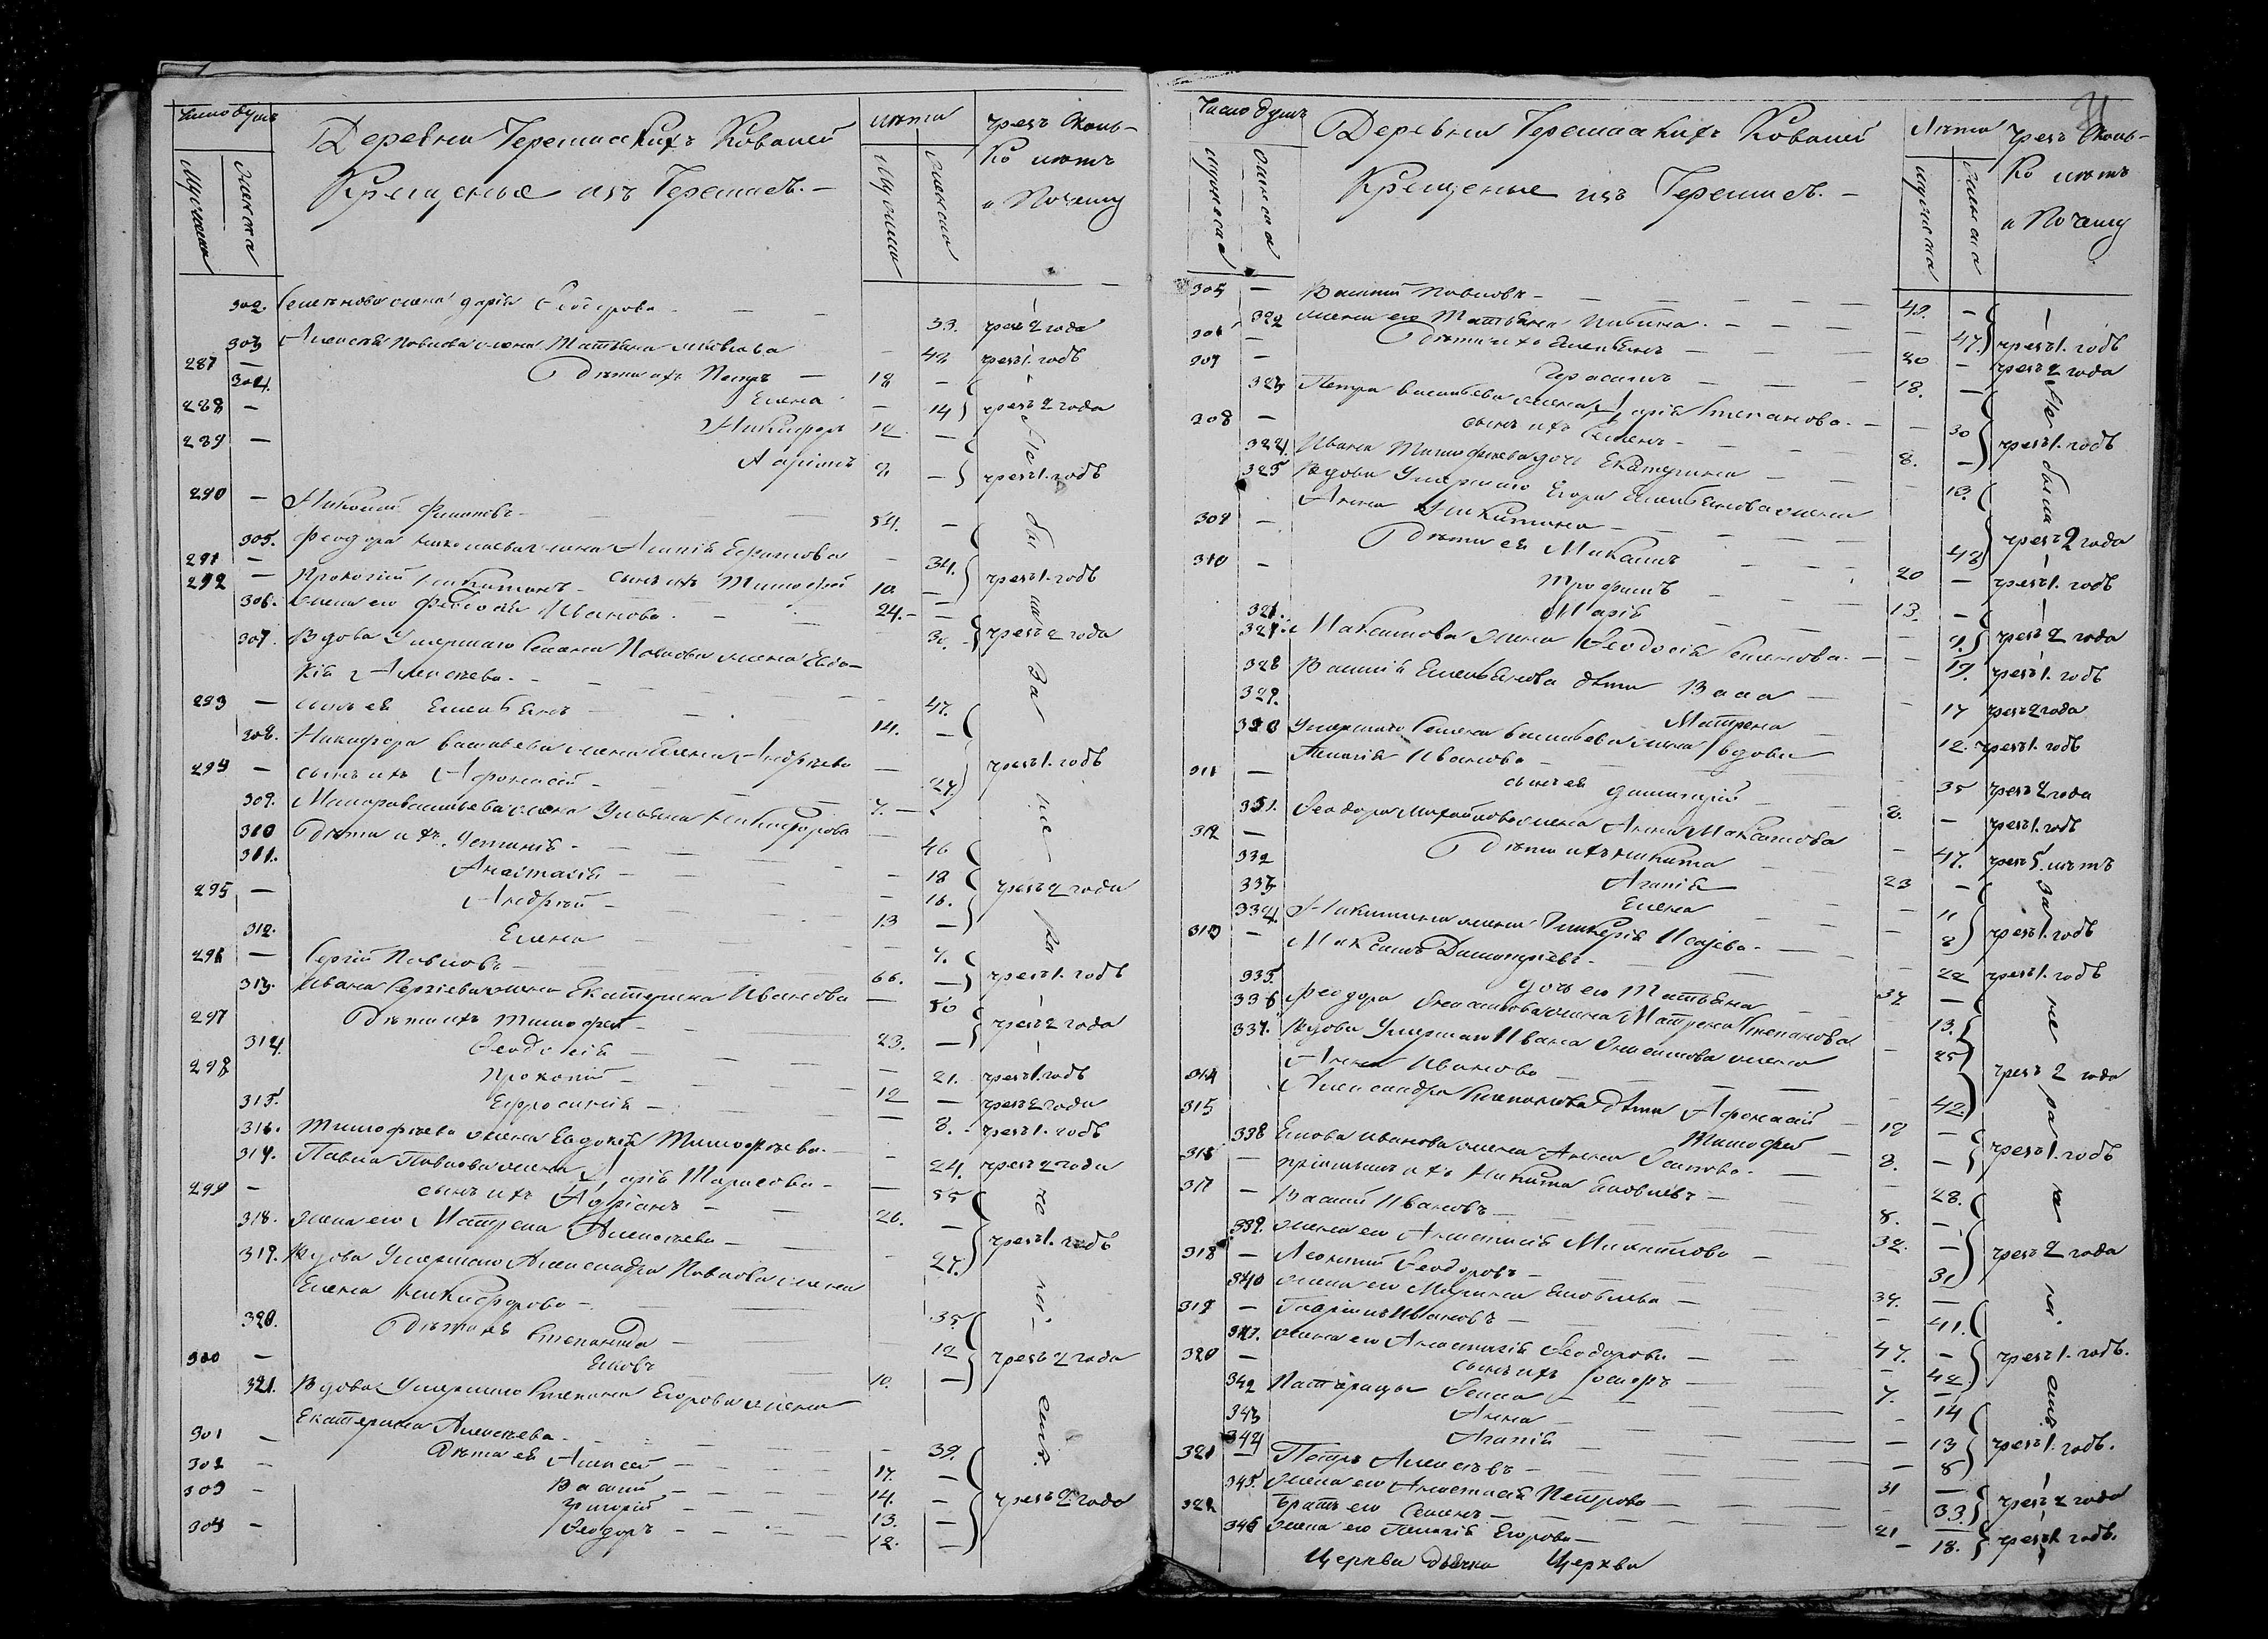 Число душъ
Деревни Черемисскихъ Ковалей
Крещеные изъ Черемисъ. –
лѣта
чрезъ сколь-
ко лѣтъ
и почему
мужеска
женска
мужеска
женска
302. Семенова жена Дарія Сидорова 33. чрезъ 2 года
303 Алексѣя Павлова жена Татьяна Яковлева 42 чрезъ 1. годъ
287 – Дѣти ихъ Петръ 18 –
304. Елена – 14 чрезъ 2 года
288 – Никифоръ 12 –
289 – 9 – чрезъ 1. годъ
290 – Николай Филиповъ 54. –
305. Феодора Николаева жена Ефимова – 34.
291 – сынъ ихъ Тимофей 10. – чрезъ 1. годъ
292 – Прокопій Никитинъ 24. –
306. жена его Иванова – 30. чрезъ 2 года
307. Вдова умершаго Семена Павлова жена Евдо-
кія Алексѣева – 47.
293 – сынъ ея Емельянъ 14. –
308. Никифора Васильева жена Елена Андрѣева – 27. чрезъ 1. годъ
294 – сынъ ихъ Афонасій 7. –
309. Васильева жена Ульяна Никифорова – 46
310 Дѣти ихъ Устинія – 18
311. Анастасія – 16. чрезъ 2 года
295 – Андрей 13 –
312. Елена – 7.
296 – Сергій Павловъ 66. – чрезъ 1. годъ
313. Ивана Сергіева жена Екатерина Иванова – 50
297 Дѣти ихъ Тимофей 23. – чрезъ 2 года
314. Феодосія – 21. чрезъ 1. годъ
298 Прокопій 12 – чрезъ 2 года
315. Ефросинія – 8. чрезъ 1. годъ
316. Тимофѣева жена Евдокія Тимофѣева – 24. чрезъ 2 года
317. Павла Павлова жена Дарія Тарасова – 55
299 – сынъ ихъ Адріанъ 26. – чрезъ 1. годъ
318. жена его Матрена Алексѣева – 27.
319. Вдова умершаго Александра Павлова жена
Елена Никифорова – 35
320. Дѣти ея Степанида – 12 чрезъ 2 года
300 – Яковъ 10. –
321. Вдова умершаго Степана Егорова жена
Екатерина Алексѣева – 39.
301 – Дѣти ея Алексей 17. –
302 – Василій 14. – чрезъ 2 года
303 – Григорій 13. –
304 – Феодоръ 12. –
Не была за не ра че ні емъ
Число душъ
Деревни Черемисскихъ Ковалей
Крещеные изъ Черемисъ. –
Лѣта
чрезъ сколь-
ко лѣтъ
и почему
мужеска
женска
мужеска
женска
305 – Василій Павловъ 49. –
322 жена его Татьяна – 47. чрезъ 1. годъ
306 – Дѣти ихъ Емельянъ 20 – чрезъ 2 года
307 – Герасимъ 18. –
323 Петра Васильева жена Дарія Степанова – 30 чрезъ 1. годъ
308 – сынъ ихъ Семенъ 8. –
324. Ивана Тимофѣева дочь Екатерина – 13.
325 Вдова умершаго Егора Емельянова жена
Анна Никитина – 48 чрезъ 2 года
309 – Дѣти ея Максимъ 20 – чрезъ 1. годъ
310 – Трофимъ 13. –
Марія – 9. чрезъ 2 года
327. Максимова жена Феодосія Семенова – 19. чрезъ 1. годъ
328 Василія Емельянова дѣти – 17 чрезъ 2 года
329. Матрена – 12. чрезъ 1. годъ
330 умершаго Семена Васильева жена вдова
Пелагія Иванова – 35 чрезъ 2 года
311 – сынъ ея Димитрій 8. – чрезъ 1. годъ
331. Феодора Михайлова жена Анна Максимова – 47. чрезъ 5. лѣтъ
312 – Дѣти ихъ Никита 23 –
332 Агапія – 11 чрезъ 1. годъ
333 Елена – 8
334. Никитина жена Гликерія Исаева – 22 чрезъ 1. годъ
313 – Максимъ Димитріевъ 37 –
335. дочь его Татьяна – 13.
336 Феодора жена Матрена Степанова – 25
337. Вдова умершаго Ивана жена чрезъ 2 года
Анна Иванова – 42.
314 Александра Степанова дѣти Афонасій 12 –
315 Тимофей 8. – чрезъ 1. годъ
338 Якова Иванова жена Анна Осипова – 28.
316 – пріемышъ ихъ Никита Яковлевъ 8. –
317 – Василій Ивановъ 32. – чрезъ 2 года
339. жена его Анастасія Михайлова – 31
318 – Леонтій Феодоровъ 39. –
340 жена его Марина Яковлева – 41.
319 – Гаврилъ Ивановъ 47. – чрезъ 1. годъ.
341. жена его Анастасія Феодорова – 42
320 – сынъ ихъ 7. –
342 Патерицы – 14
343 Анна – 13 чрезъ 1. годъ.
344 Агапія – 8
321 – Петръ Алексѣевъ 31 –
345. жена его Анастасія Петрова – 33. чрезъ 2 года
322 братъ его Семенъ 21 –
346 жена его Пелагія Егорова – 18. чрезъ 1. годъ.
Не была за не ра че ні емъ
Церкви дьячка Церкви